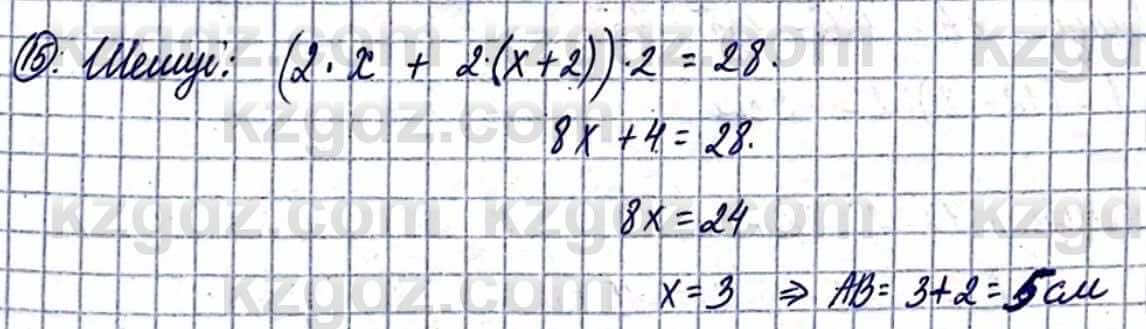 15. Шешуі: (2·x + 2·(x+2))·2 = 28.
8x + 4 = 28.
8x = 24
x = 3 ⇒ AB = 3+2 = 5 см
kzgdz.com